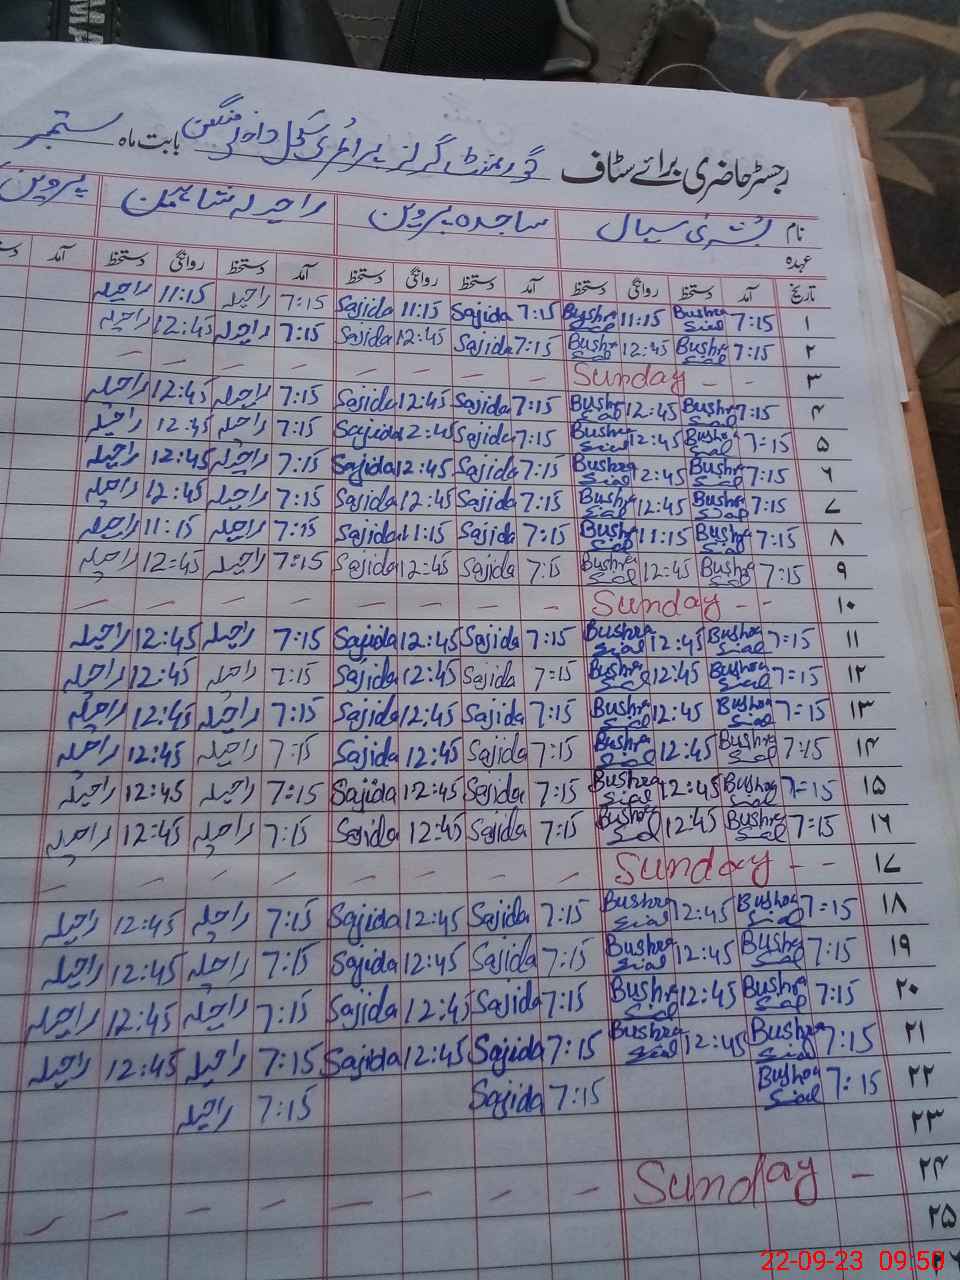 رجسٹر حاضری برائے سٹاف گورنمنٹ گرلز پرائمری سکول داخلی بابت ماہ ستمبر
نام بشریٰ سیال ساجدہ پروین راحیلہ شاہین پروین
عہدہ
تاریخ آمد دستخط روانگی دستخط آمد دستخط روانگی دستخط آمد دستخط روانگی دستخط آمد
۱ 7:15 Bushra Sial 11:15 Bushra Sial 7:15 Sajida 11:15 Sajida 7:15 راحیلہ 11:15 راحیلہ
۲ 7:15 Bushra Sial 12:45 Bushra Sial 7:15 Sajida 12:45 Sajida 7:15 راحیلہ 12:45 راحیلہ
۳ - - Sunday - - - - - - - -
۴ 7:15 Bushra Sial 12:45 Bushra Sial 7:15 Sajida 12:45 Sajida 7:15 راحیلہ 12:45 راحیلہ
۵ 7=15 Bushra Sial 12:45 Bushra Sial 7:15 Sajida 12:45 Sajida 7:15 راحیلہ 12:45 راحیلہ
۶ 7:15 Bushra Sial 12:45 Bushra Sial 7:15 Sajida 12:45 Sajida 7:15 راحیلہ 12:45 راحیلہ
۷ 7:15 Bushra Sial 12:45 Bushra Sial 7:15 Sajida 12:45 Sajida 7:15 راحیلہ 12:45 راحیلہ
۸ 7:15 Bushra Sial 11:15 Bushra Sial 7:15 Sajida 11:15 Sajida 7:15 راحیلہ 11:15 راحیلہ
۹ 7:15 Bushra Sial 12:45 Bushra Sial 7:15 Sajida 12:45 Sajida 7:15 راحیلہ 12=45 راحیلہ
۱۰ - - Sunday - - - - - - - -
۱۱ 7=15 Bushra Sial 12:45 Bushra Sial 7:15 Sajida 12:45 Sajida 7:15 راحیلہ 12:45 راحیلہ
۱۲ 7=15 Bushra Sial 12:45 Bushra Sial 7=15 Sajida 12:45 Sajida 7:15 راحیلہ 12:45 راحیلہ
۱۳ 7=15 Bushra Sial 12:45 Bushra Sial 7:15 Sajida 12:45 Sajida 7:15 راحیلہ 12:45 راحیلہ
۱۴ 7:15 Bushra Sial 12:45 Bushra Sial 7:15 Sajida 12:45 Sajida 7:15 راحیلہ 12:45 راحیلہ
۱۵ 7=15 Bushra Sial 12:45 Bushra Sial 7:15 Sajida 12:45 Sajida 7=15 راحیلہ 12:45 راحیلہ
۱۶ 7=15 Bushra Sial 12:45 Bushra Sial 7:15 Sajida 12:45 Sajida 7:15 راحیلہ 12:45 راحیلہ
۱۷ - - Sunday - - - - - - - -
۱۸ 7=15 Bushra Sial 12:45 Bushra Sial 7:15 Sajida 12:45 Sajida 7:15 راحیلہ 12:45 راحیلہ
۱۹ 7:15 Bushra Sial 12:45 Bushra Sial 7:15 Sajida 12:45 Sajida 7:15 راحیلہ 12:45 راحیلہ
۲۰ 7:15 Bushra Sial 12:45 Bushra Sial 7:15 Sajida 12:45 Sajida 7:15 راحیلہ 12:45 راحیلہ
۲۱ 7:15 Bushra Sial 12:45 Bushra Sial 7:15 Sajida 12:45 Sajida 7:15 راحیلہ 12:45 راحیلہ
۲۲ 7=15 Bushra Sial 7:15 Sajida 7:15 راحیلہ
۲۳
۲۴ - Sunday - - - - - - - -
۲۵
22-09-23 09:50